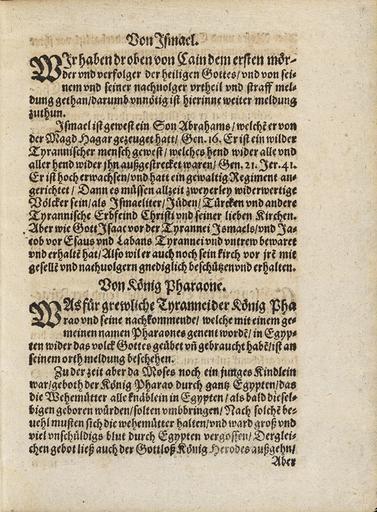 Von Ismael.
WIr haben droben von Cain dem ersten mör-
der vnd verfolger der heiligen Gottes/ vnd von sei-
nem vnd seiner nachuolger vrtheil vnd straff mel-
dung gethan/ darumb vnnötig ist hierinne weiter meldung
zuthun.
Ismael ist gewest ein Son Abrahams/ welchē er von
der Magd Hagar gezeuget hatt/ Gen. 16. Er ist ein wilder
Tyrannischer mensch gewest/ welches hend wider alle vnd
aller hend wider jhn außgestrecket waren/ Gen. 21. Jer. 41.
Er ist hoch erwachsen/ vnd hatt ein gewaltig Regiment an-
gerichtet/ Dann es müssen allzeit zweyerley widerwertige
Völcker sein/ als Ismaeliter/ Jüden/ Türcken vnd andere
Tyrannische Erbfeind Christi vnd seiner lieben Kirchen.
Aber wie Gott Isaac vor der Tyrannei Ismaels/ vnd Ja-
cob vor Esaus vnd Labans Tyrannei vnd vntrew bewaret
vnd erhaltē hat/ Also wil er auch noch sein kirch vor jrē mit
gesellē vnd nachuolgern gnediglich beschützen vnd erhalten.
Von König Pharaone.
WAs für grewliche Tyrannei der König Pha
rao vnd seine nachkommende/ welche mit einem ge-
meinen namen Pharaones genent wordē/ in Egyp-
ten wider das volck Gottes geübet vn̄ gebraucht habē/ ist an
seinem orth meldung beschehen.
Zu der zeit aber da Moses noch ein junges Kindlein
war/ geboth der König Pharao durch gantz Egypten/ das
die Wehemütter alle knäblein in Egypten/ als bald diesel-
bigen geboren würden/ solten vmbbringen/ Nach solchē be-
uehl musten sich die wehemütter halten/ vnd ward groß vnd
viel vnschüldigs blut durch Egypten vergossen/ Derglei-
chen gebot ließ auch der Gottloß König Herodes außgehn/
Aber